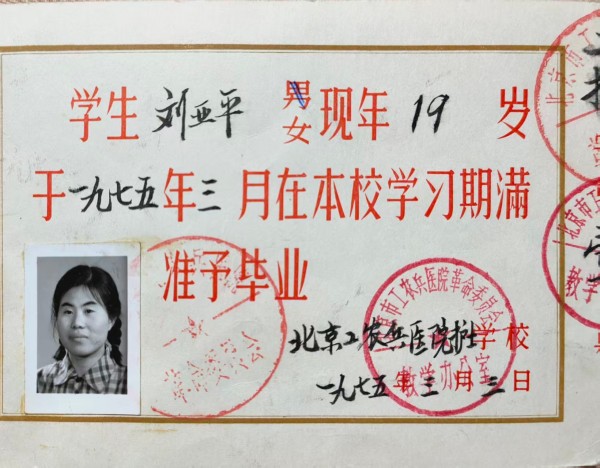 学生 刘亚平 男女 现年 19 岁
于一九七五年三月在本校学习期满
准予毕业
北京工农兵医院护士学校
一九七五年三月三日
北京市工农兵医院革命委员会
教学办公室
北京市工
教学